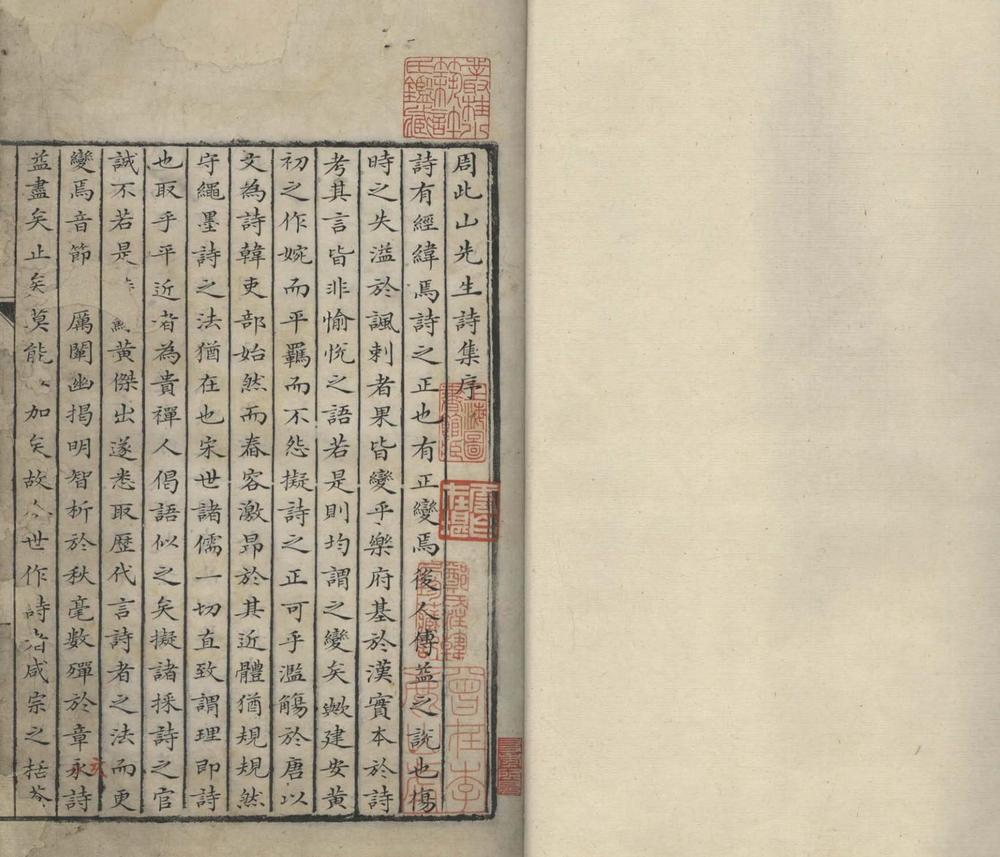 周此山先生詩集序
詩有經緯焉詩之正也有正變焉後人傅益之說也傷
時之失溢於諷刺者果皆變乎樂府基於漢實本於詩
考其言皆非愉悅之語若是則均謂之變矣歟建安黃
初之作婉而平羈而不怨擬詩之正可乎濫觴於唐以
文為詩韓吏部始然而舂容激昂於其近體猶規規然
守繩墨詩之法猶在也宋世諸儒一切直致謂理即詩
也取乎平近者為貴禪人偈語似之矣擬諸採詩之官
誠不若是 黃傑出遂悉取歷代言詩者之法而更
變焉音節 厲闡幽揭明智析於秋毫數殫於章永詩
益盡矣止矣莫能 加矣故 世作詩者咸宗之栝蒼
上海圖書館藏